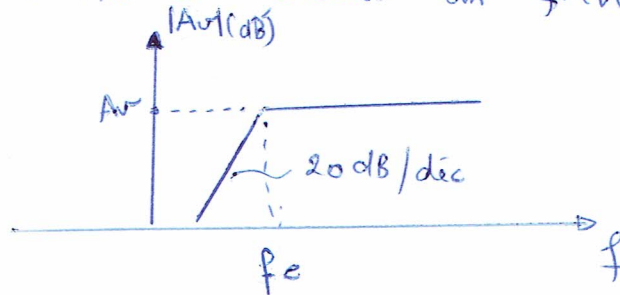 |Av|(dB)
Av
20 dB/déc
fc
f